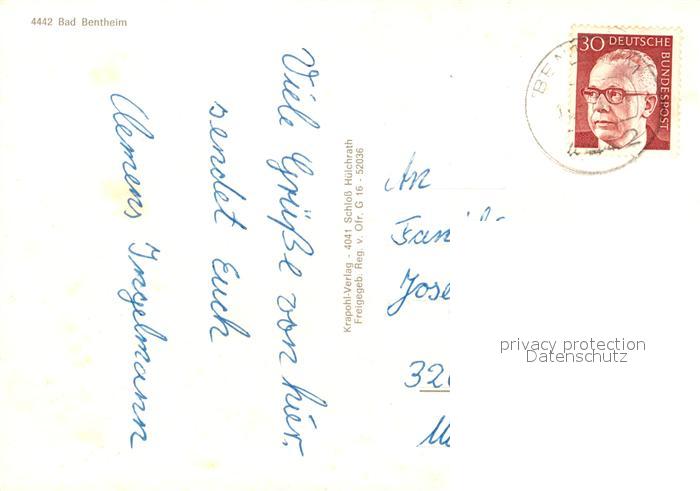 4442 Bad Bentheim
Viele Grüße von hier.
sendet Euch
Clemens Ingelmann
Krapohl-Verlag - 4041 Schloß Hülchrath
Freigegeb. Reg. v. Ofr. G 16 - 52036
30 DEUTSCHE
BUNDESPOST
An
Fam
Jose
32
privacy protection
Datenschutz